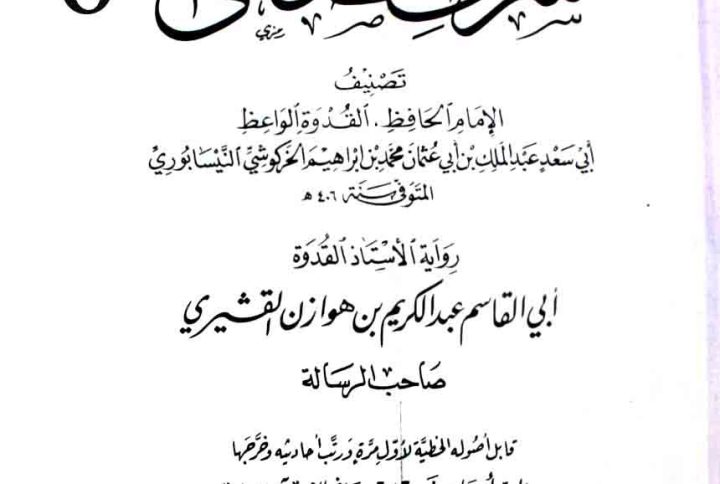 تصنيف
الإمام الحافظ . القدوة الواعظ
أبي سعد عبد الملك بن أبي عثمان محمد بن إبراهيم الخركوشي النيسابوري
المتوفى سنة ٤٠٦ هـ
رواية الأستاذ القدوة
أبي القاسم عبد الكريم بن هوازن القشيري
صاحب الرسالة
قابل أصوله الخطية لأول مرة ورتب أحاديثه وخرجها